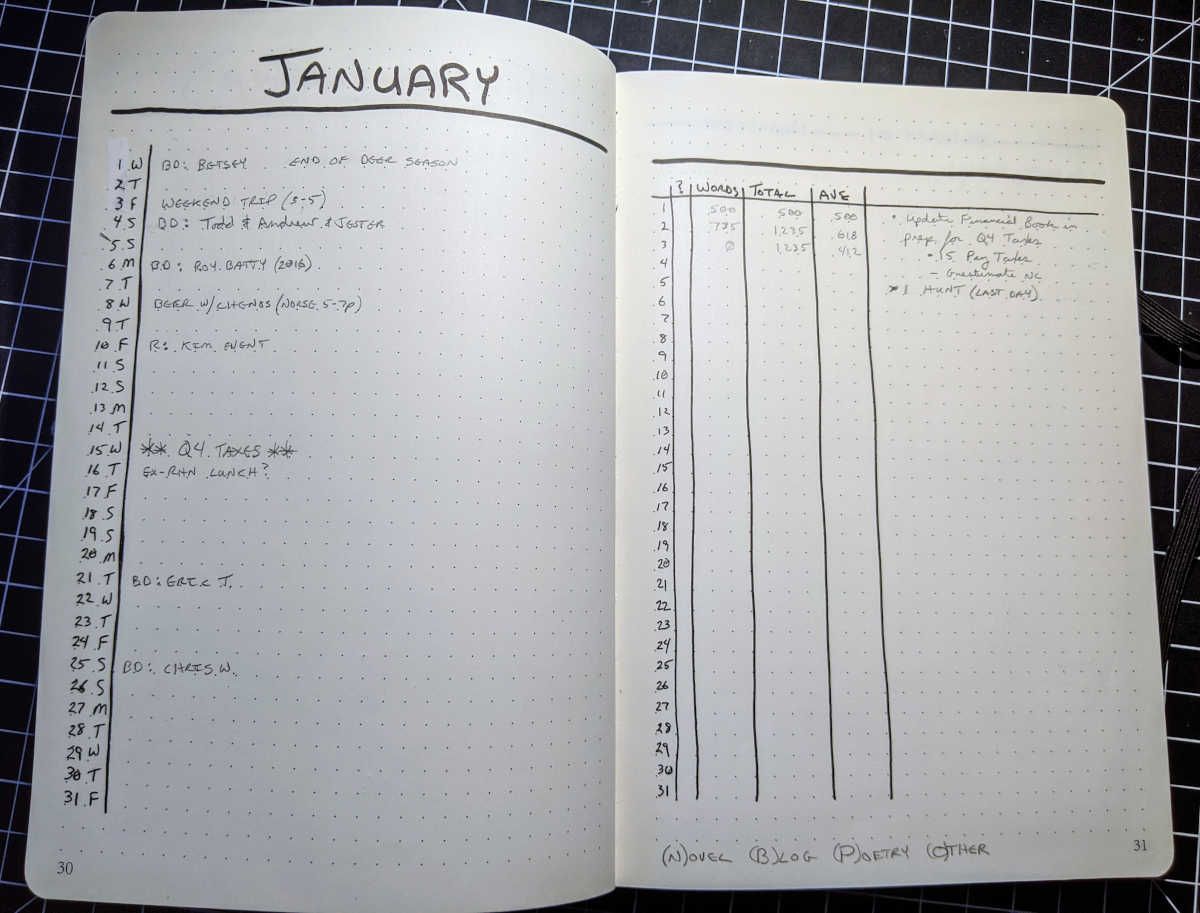 JANUARY
1 W BD: BETSEY END OF DEER SEASON
2 T
3 F WEEKEND TRIP (3-5)
4 S BD: Todd & Andrew & JESTER
5 S
6 M BD: ROY BATTY (2016)
7 T
8 W BEER W/ (NORSE 5-7p)
9 T
10 F R: KIM EVENT
11 S
12 S
13 M
14 T
15 W ** Q4 TAXES **
16 T EX-RHN LUNCH?
17 F
18 S
19 S
20 M
21 T BD: ERIC T.
22 W
23 T
24 F
25 S BD: CHRIS W.
26 S
27 M
28 T
29 W
30 T
31 F
30
? WORDS TOTAL AVE
1 500 500 500
2 735 1,235 618
3 0 1,235 412
4
5
6
7
8
9
10
11
12
13
14
15
16
17
18
19
20
21
22
23
24
25
26
27
28
29
30
31
• Update Financial Book in
prep for Q4 Taxes
• 15 Pay Taxes
- Guestimate NC
1 HUNT (LAST DAY)
(N)OVEL (B)LOG (P)OETRY (O)THER
31